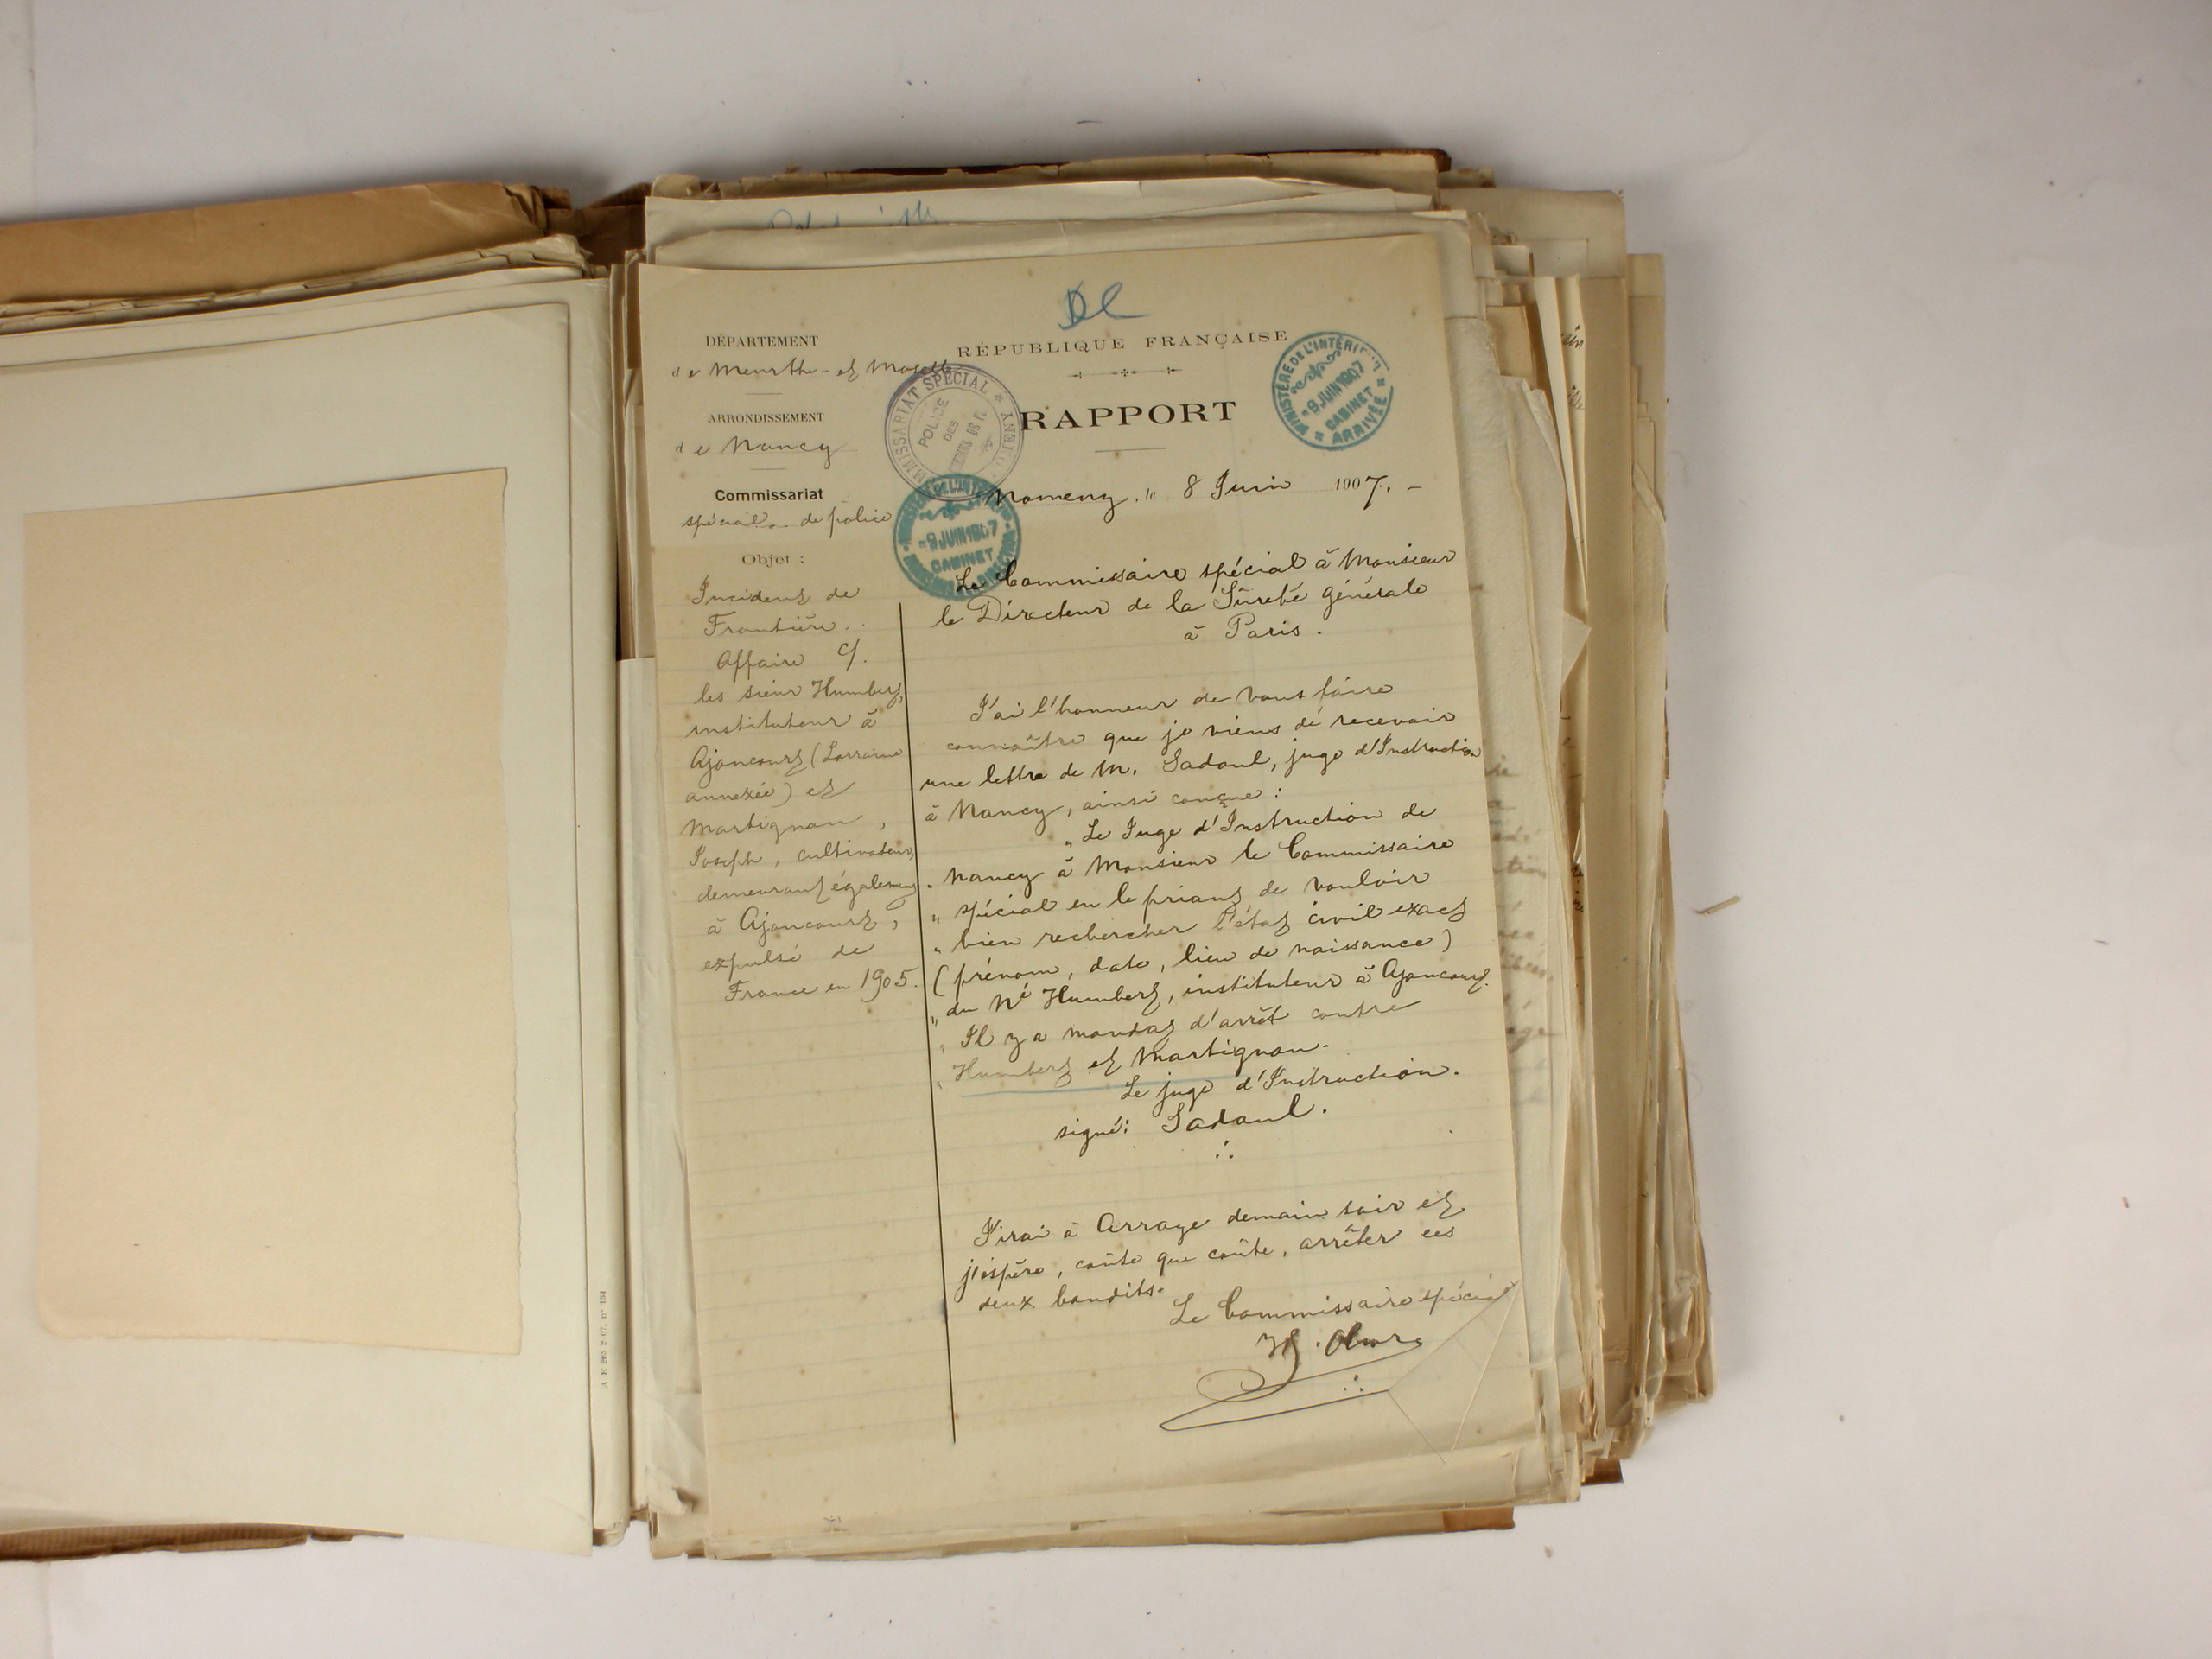 DÉPARTEMENT
de Meurthe-et Moselle
ARRONDISSEMENT
de Nancy
Commissariat
spécial de police
Objet :
Incident de
Frontière.
Affaire c/.
les sieur Humbert,
instituteur à
Ajoncourt (Lorraine
annexée) et
Martignon,
Joseph, cultivateur,
demeurant également
à Ajoncourt,
expulsé de
France en 1905.
RÉPUBLIQUE FRANÇAISE
RAPPORT
COMMISSARIAT SPÉCIAL
POLICE
DES
CHEMINS DE FER
NOMENY
MINISTÈRE DE L'INTÉRIEUR
9 JUIN 1907
CABINET
ARRIVÉE
9 JUIN 1907
CABINET
Nomeny, le 8 Juin 1907. -
Le Commissaire spécial à Monsieur
le Directeur de la Sûreté générale
à Paris.
J'ai l'honneur de vous faire
connaître que je viens de recevoir
une lettre de M. Sadoul, juge d'Instruction
à Nancy, ainsi conçue :
" Le Juge d'Instruction de
" Nancy à Monsieur le Commissaire
" spécial en le priant de vouloir
" bien rechercher l'état civil exact
( prénom, date, lieu de naissance )
" du Né Humbert, instituteur à Ajoncourt.
" Il y a mandat d'arrêt contre
" Humbert et Martignon.
Le juge d'Instruction.
signé: Sadoul.
J'irai à Arraye demain soir et
j'espère, coûte que coûte, arrêter ces
deux bandits.
Le Commissaire spécial
A E 263 2-07, n° 154